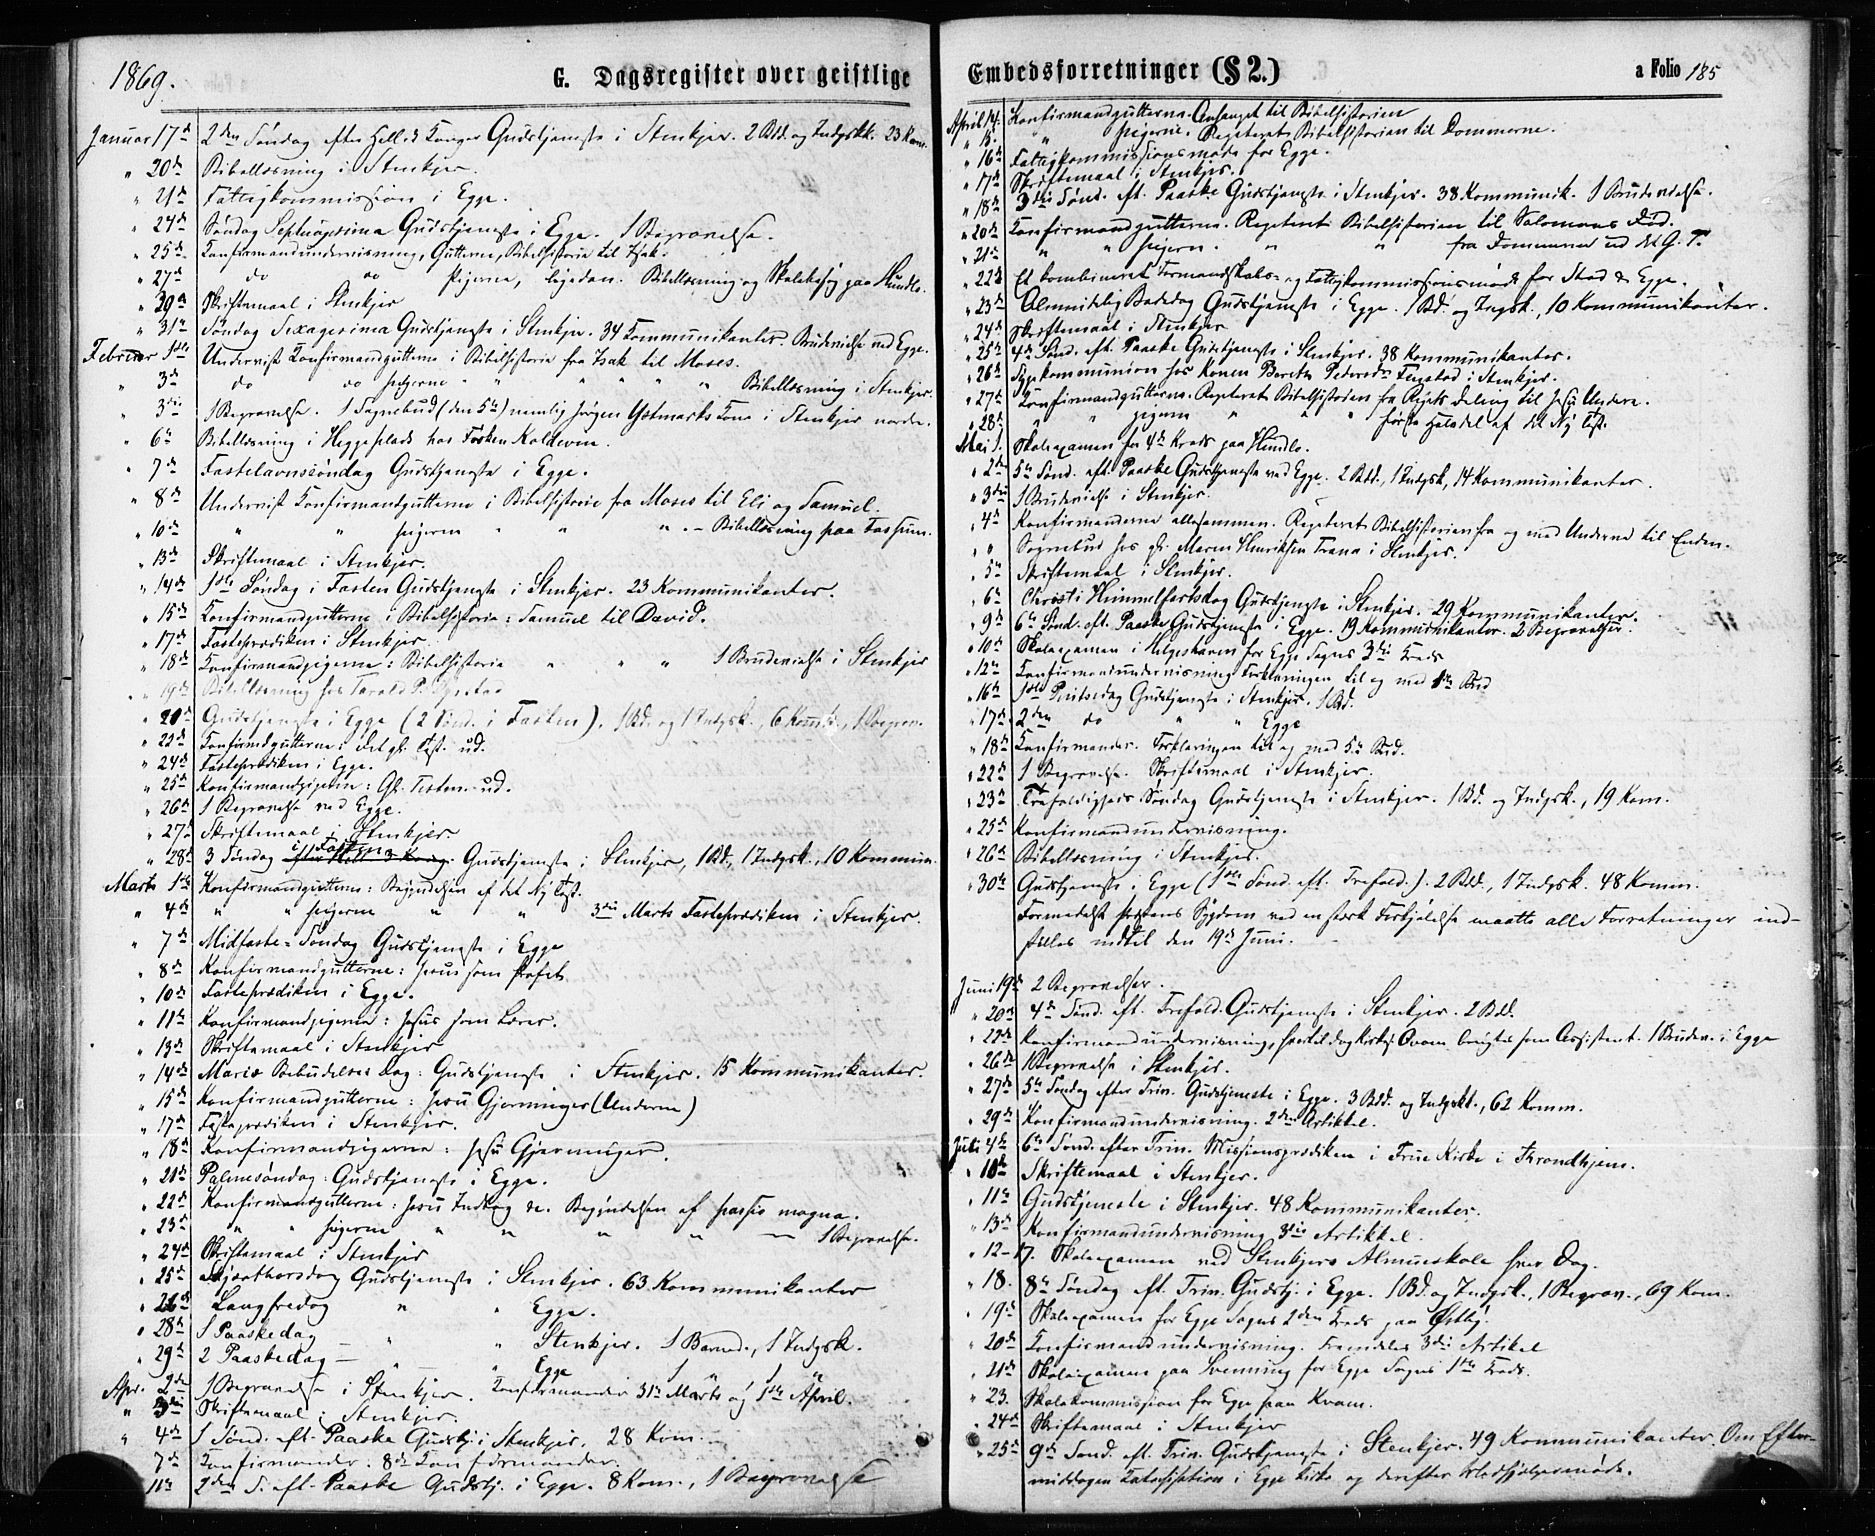 1869.
G. Dagsregister over geistlige
Januar 17de 2den Søndag efter Hell. 3 Konger Gudstjeneste i Stenkjer. 2 Bd. og Indgskk. 23 Kom.
" 20de Bibellæsning i Stenkjer.
" 21de Fattigkommission i Egge.
" 24de Søndag Septuagesima Gudstjeneste i Egge. 1 Begravelse.
" 25de Konfirmandundervisning, Gutterne, Bibelhistorie til Isak.
" 27de do do Pigerne, ligedan. Bibellæsning og Skolebesøg paa Hundlo.
" 30de Skriftemaal i Stenkjer
" 31te Søndag Sexagesima Gudstjeneste i Stenkjer. 34 Kommunikanter. Brudevielse ved Egge.
Februar 1ste Undervist Konfirmandgutterne i Bibelhistorie fra Isak til Moses.
" 3de do do Pigerne " " " " " Bibellæsning i Stenkjer.
" 3die 1 Begravelse. 1 Sognebud (den 5te) nemlig Jørgen Østmarks Kone i Stenkjer nordre.
" 6te Bibellæsning i Heggeplads hos Torsten
" 7de Fastelavnssøndag Gudstjeneste i Egge.
" 8de Undervist Konfirmandgutterne i Bibelhistorie fra Moses til Eli og Samuel.
" 10de " " Pigerne " " " - Bibellæsning paa Fossum.
" 13de Skriftemaal i Stenkjer.
" 14de 1ste Søndag i Fasten Gudstjeneste i Stenkjer. 23 Kommunikanter.
" 15de Konfirmandgutterne i Bibelhistorie: Samuel til David.
" 17de Fasteprædiken i Stenkjer.
" 18de Konfirmandpigerne: Bibelhistorie " " " 1 Brudevielse i Stenkjer
" 19de Bibellæsning hos
" 21de Gudstjeneste i Egge (2 Sønd. i Fasten). 1 Bd. og 1 Indgsk., 6 Kom., 1 Begrav.
" 23de Konfirmdgutterne: Det gl. Test. ud.
" 24de Fasteprædiken i Egge.
" 25de Konfirmandpigerne: Gl. Testm. ud.
" 26de 1 Begravelse ved Egge.
" 27de Skriftemaal i Stenkjer.
" 28de 3 Søndag i Fasten Gudstjeneste i Stenkjer, 1 Bd., 1 Indgsk., 10 Kommun.
Marts 1ste Konfirmandgutterne: Begyndelsen af det Ny Test.
" 4de " " Pigerne " " 3die Marts Fasteprædiken i Stenkjer.
" 7de Midfaste-Søndag Gudstjeneste i Egge
" 8de Konfirmandgutterne: Jesus som Profet
" 10de Fasteprædiken i Egge.
" 11te Konfirmandpigerne: Jesus som Lærer.
" 13de Skriftemaal i Stenkjer
" 14de Mariæ Bebudelses Dag: Gudstjeneste i Stenkjer. 15 Kommunikanter.
" 15de Konfirmandgutterne: Jesu Gjerninger (Underne)
" 17de Fasteprædiken i Stenkjer.
" 18de Konfirmandpigerne: Jesu Gjerninger.
" 21de Palmesøndag: Gudstjeneste i Egge.
" 22de Konfirmandgutterne: Jesu Indtog &c. Begyndelsen af passio magna.
" 23de " " Pigerne " " " " — 1 Begravelse.
" 24de Skriftemaal i Stenkjer
" 25de Skjærthorsdag Gudstjeneste i Stenkjer. 63 Kommunikanter
" 26de Langfredag " " Egge.
" 28de 1 Paaskedag — " " Stenkjer. 1 Barned., 1 Indgsk.
" 29de 2 Paaskedag — " " Egge 1 " 1 "
Apr. 2den 1 Begravelse i Stenkjer. Konfirmander 31te Marts og 1ste April.
" 3die Skriftemaal i Stenkjer.
" 4de 1 Sønd. eft. Paaske Gudstj. i Stenkjer. 28 Kom.
7de Konfirmander. 8de Konfirmander.
11te 2den S. eft. Paaske Gudstj. i Egge. 8 Kom., 1 Begravelse
Embedsforretninger (§ 2.)
a Folio 185
April 14. Konfirmandgutterne. Anfanget til Bibelhistorien
" 15. " Pigerne. Repeteret Bibelhistorien til Dommerne.
" 16de Fattigkommissionsmøde for Egge.
" 17de Skriftemaal i Stenkjer.
" 18de 3die Sønd. eft. Paaske Gudstjeneste i Stenkjer. 38 Kommunik. 1 Brudevielse.
" 20de Konfirmandgutterne. Repeteret Bibelhistorien til Salomons Død.
" 21de " " Pigerne. " " fra Dommerne ud det G. T.
" 22de Et kombineret Formandskabs- og Fattigkommissionsmøde for Stod & Egge.
" 23de Almindelig Bededag Gudstjeneste i Egge. 1 Bd. og Indgsk., 10 Kommunikanter.
" 24de Skriftemaal i Stenkjer
" 25de 4de Sønd. eft. Paaske Gudstjeneste i Stenkjer. 38 Kommunikanter.
" 26de Sygekommunion hos Konen Bereth Pedersdr i Stenkjer.
" 27de Konfirmandgutterne. Repeteret Bibelhistorien fra Rigets Deling til Jesu Undere.
" 28de " " Pigerne " " " første Halvdel af det Ny Test.
Mai 1. Skoleexamen for 4de Kreds paa Hundlo.
" 2den 5te Sønd. eft. Paaske Gudstjeneste ved Egge. 2 Bdd., 1 Indgsk., 14 Kommunikanter.
" 3die 1 Brudevielse i Stenkjer.
" 4de Konfirmanderne allesammen. Repeteret Bibelhistorien fra og med Underne til Enden.
" " Sognebud hos gl. Maren Henriksen Trana i Stenkjer.
" 5te Skriftemaal i Stenkjer.
" 6te Christi Himmelfartsdag Gudstjeneste i Stenkjer. 29 Kommunikanter.
" 9de 6te Sønd. eft. Paaske Gudstjeneste i Egge. 19 Kommunikanter. 2 Begravelser.
" 10de Skoleexamen i for Egge Sogns 3die Kreds
" 12te Konfirmandundervisning. Forklaringen til og med Bud
" 16de 1ste Pintsedag Gudstjeneste i Stenkjer. 1 Bd.
" 17de 2den do " " Egge
" 18de Konfirmander. Forklaringen til og med 5te Bud.
" 22de 1 Begravelse. Skriftemaal i Stenkjer.
" 23de Trefoldigheds Søndag Gudstjeneste i Stenkjer. 1 Bd. og Indgsk., 19 Kom.
" 25de Konfirmandundervisning.
" 26de Bibellæsning i Stenkjer.
" 30te Gudstjeneste i Egge (1ste Sønd. eft. Trefold.). 2 Bdd., 1 Indgsk. 48 Komm.
Formedelst Præstens Sygdom ved en stærk Forkjølelse maatte alle Forretninger ind-
stilles indtil den 19de Juni.
Juni 19de 2 Begravelser.
" 20de 4de Sønd. eft. Trefold. Gudstjeneste i Stenkjer. 2 Bdd.
" 23de Konfirmandundervisning, Kirkes. Kvam som Assistent. 1 Brudev. i Egge
" 26de 1 Begravelse i Stenkjer.
" 27de 5te Søndag efter Trin. Gudstjeneste i Egge. 3 Bdd. og Indgskt., 62 Komm.
" 29de Konfirmandundervisning. 2den Artikkel.
Juli 4de 6te Sønd. efter Trin. Missionsprædiken i Frue Kirke i Throndhjem.
" 10de Skriftemaal i Stenkjer.
" 11te Gudstjeneste i Stenkjer. 48 Kommunikanter.
" 13de Konfirmandundervisning 3die Artikkel.
" 12-17. Skoleexamen ved Stenkjers Almueskole hver Dag.
" 18. 8de Søndag eft. Trin. Gudstj. i Egge. 1 Bd. og Indgsk., 1 Begrav., 69 Kom.
" 19de Skoleexamen for Egge Sogns 2den Kreds paa Østby.
" 20de Konfirmandundervisning. Fremdeles 3die Artikel
" 21de Skoleexamen paa Svenning for Egge Sogns 1ste Kreds.
" 23. Skolekommission for Egge paa Kvam.
" 24de Skriftemaal i Stenkjer
" 25de 9de Sønd. eft. Trin. Gudstjeneste i Stenkjer. 49 Kommunikanter. Om Efter-
middagen Katechisation i Egge Kirke og derefter